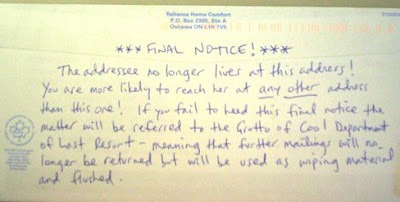 Reliance Home Comfort
P.O. Box 2305, Stn A
Oshawa ON L1H 7V5
*** FINAL NOTICE! ***
The addressee no longer lives at this address!
You are more likely to reach her at any other address
than this one! If you fail to heed this final notice the
matter will be referred to the Grotto of Cool Department
of Last Resort - meaning that further mailings will no
longer be returned but will be used as wiping material
and flushed.